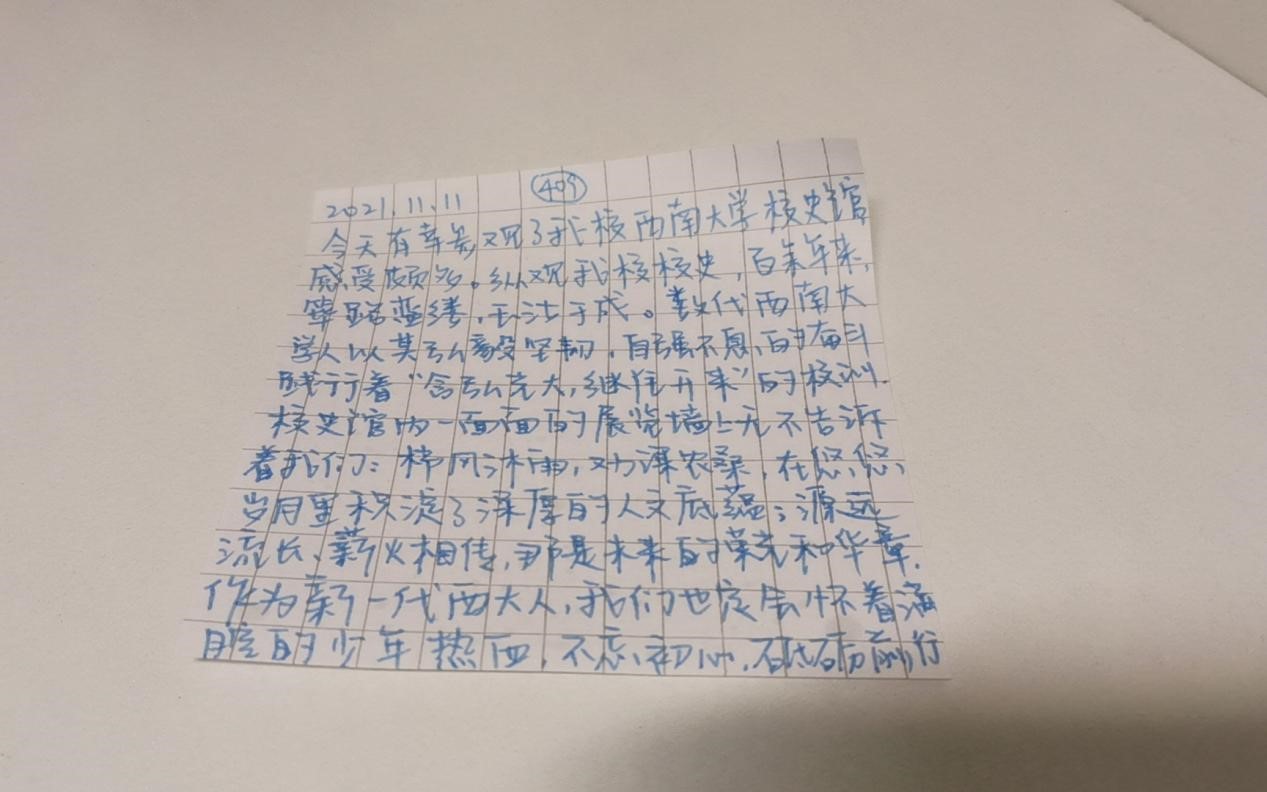 2021.11.11 409
今天有幸参观了我校西南大学校史馆
感受颇多。纵观我校校史，百余年来，
筚路蓝缕，玉汝于成。数代西南大
学人以其弘毅坚韧，自强不息，的奋斗
践行着“含弘光大，继往开来”的校训.
校史馆内一面面的展览墙上无不告诉
着我们：栉风沐雨，劝课农桑，在悠悠
岁月里积淀了深厚的人文底蕴；源远
流长、薪火相传，那是未来的荣光和华章.
作为新一代西大人，我们也定会怀着满
腔的少年热血，不忘初心，砥砺前行